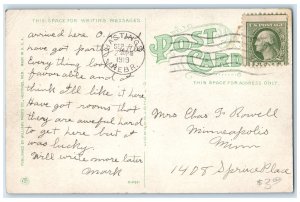 THIS SPACE FOR WRITING MESSAGES
POST CARD
THIS SPACE FOR ADDRESS ONLY
HASTINGS
NEBR.
1919
arrived here O.
have got partly
every thing loo
favorable and
think Ill like it here
Have got rooms that
they are aweful hard
to get here but it
was lucky.
Will write more later
Mark
Mrs Chas F. Powell
Minneapolis
Minn
1408 Spruce Place
$3.00